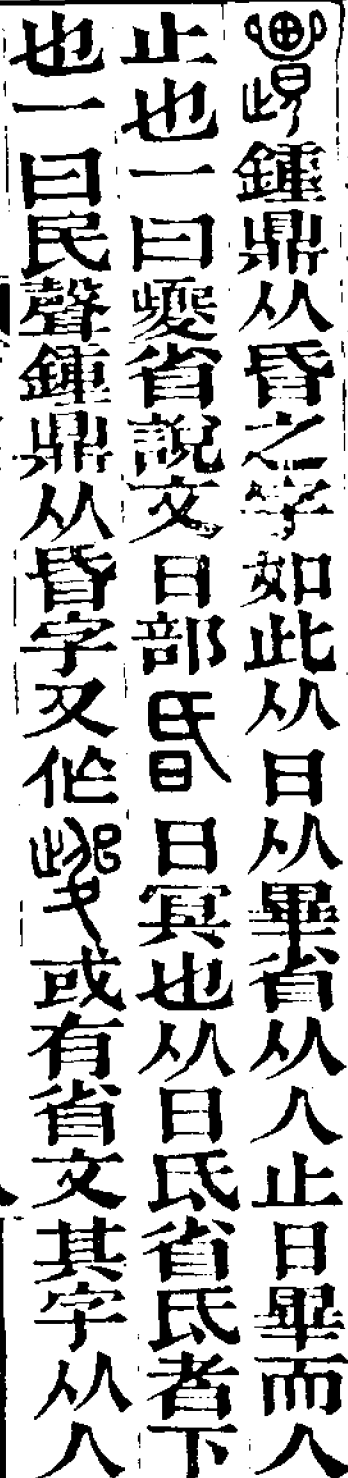 鍾鼎从昏之字如此从日从畢省从人止日畢而人
止也一曰夔省說文日部昬日冥也从日氐省氐者下
也一曰民聲鍾鼎从昏字又作或有省文其字从人